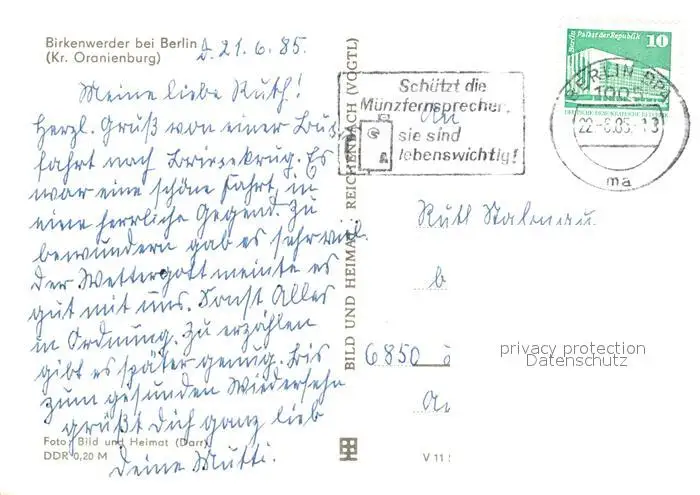 Birkenwerder bei Berlin
(Kr. Oranienburg)
d. 21.6.85.
Meine liebe Ruth!
Herzl. Gruß von einer Bus
fahrt nach . Es
war eine schöne Fahrt, in
eine herrliche Gegend. Zu
bewundern gab es sehr viel.
Der Wettergott meinte es
gut mit uns. Sonst Alles
in Ordnung. Zu erzählen
gibt es später genug. Bis
zum gesunden Wiedersehn
grüßt Dich ganz lieb
Deine Mutti.
Foto: Bild und Heimat (Darr)
DDR 0,20 M
BILD UND HEIMAT REICHENBACH (VOGTL)
Schützt die
Münzfernsprecher,
sie sind
lebenswichtig!
An
Berlin Palast der Republik
10
DEUTSCHE DEMOKRATISCHE REPUBLIK
BERLIN BPA
1085
22.-6.85.-13
ma
Ruth
6850
privacy protection
Datenschutz
V 11